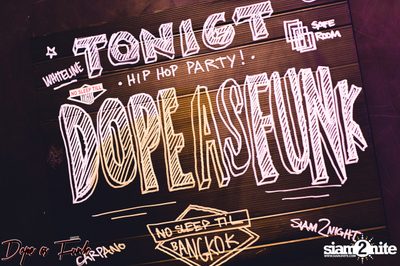 TONIGT
SAFE
ROOM
WHITELINE
NO SLEEP TIL
· HIP HOP PARTY! ·
DOPE AS FUNK
NO SLEEP TIL
BANGKOK
CARPANO
SIAM2NIGHT
Dope as Funk
siam2nite
WWW.SIAM2NITE.COM